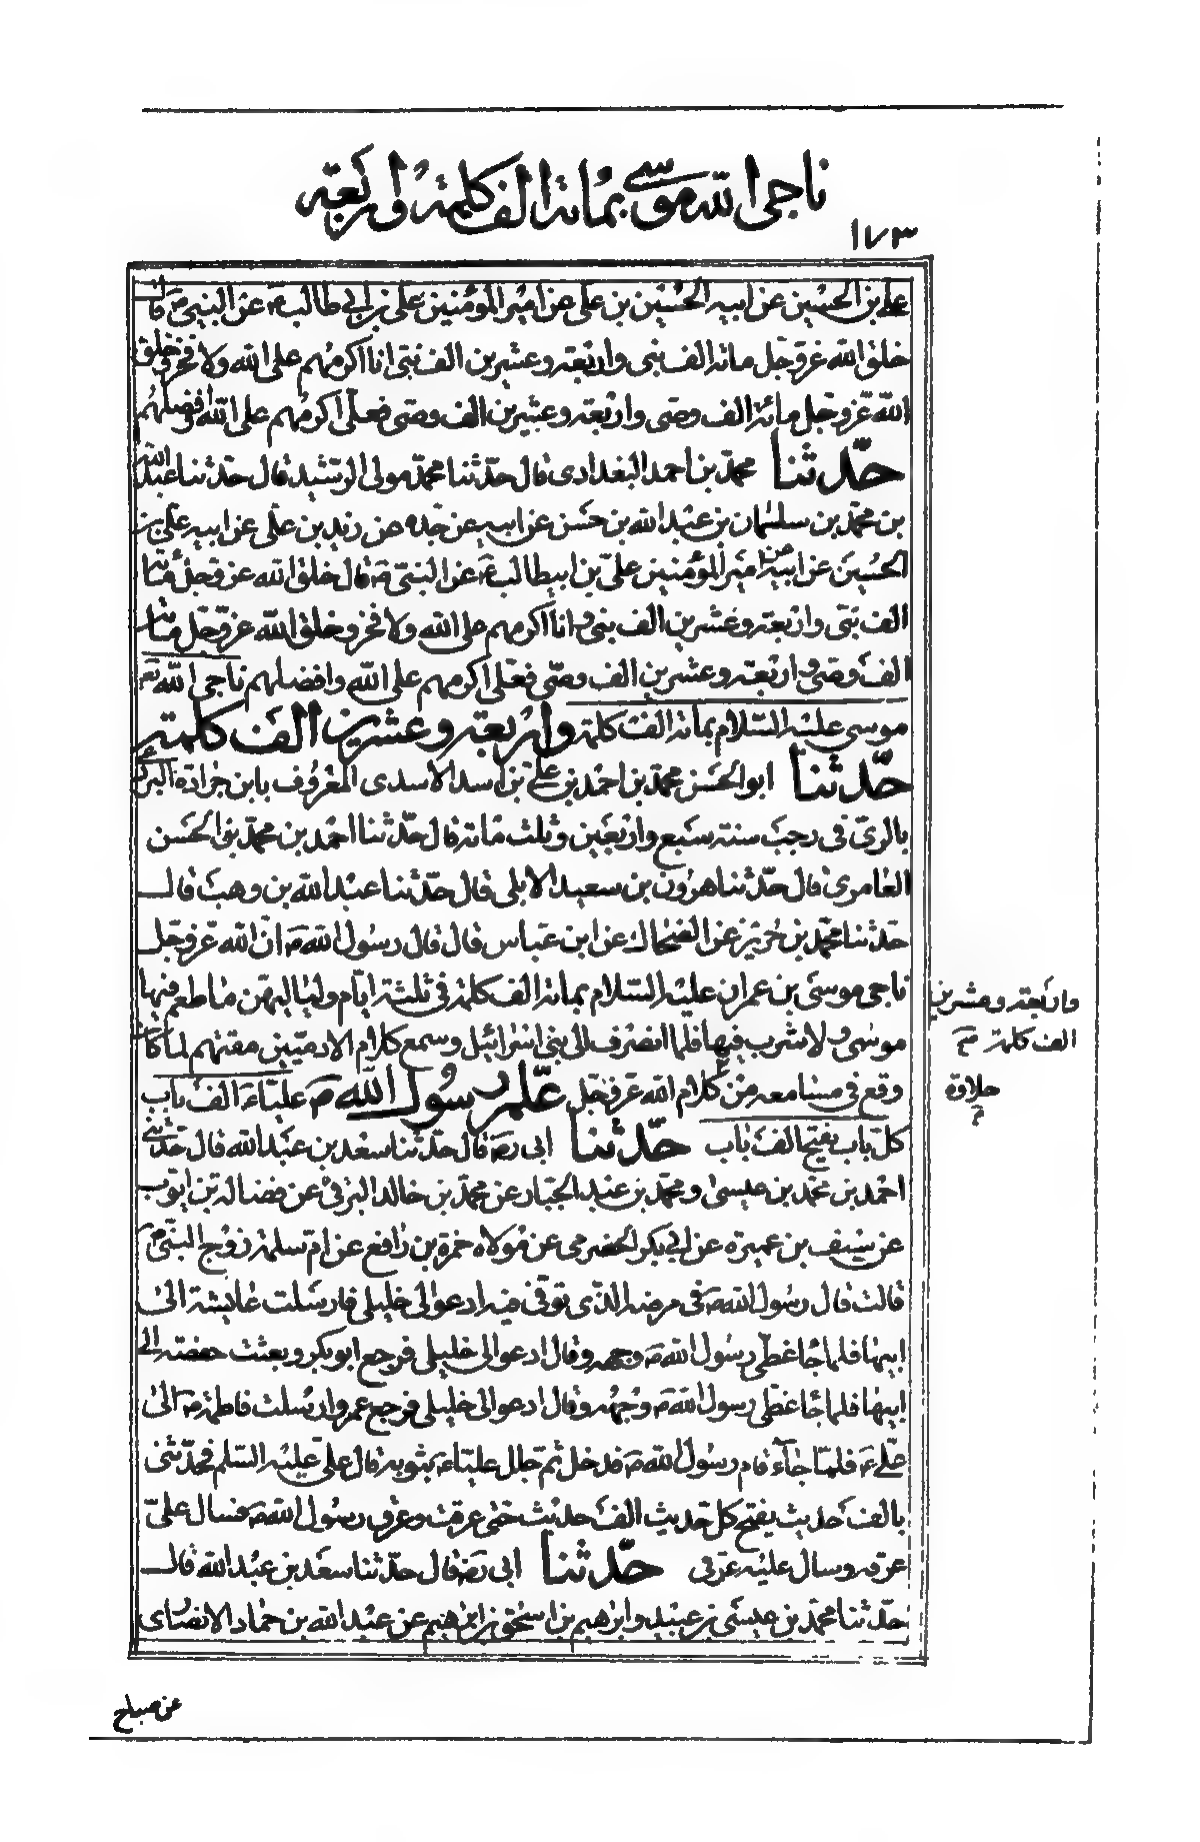 ناجى الله موسى بمائة الف كلمة واربعة
١٧٣
على بن الحسين عن ابيه الحسين بن على عن امير المؤمنين على بن ابي طالب ع عن النبى ص قال
خلق الله عز وجل مائة الف نبى واربعة وعشرين الف نبى انا اكرمهم على الله ولا فخر وخلق
الله عز وجل مائة الف وصى واربعة وعشرين الف وصى فعلى اكرمهم على الله وافضلهم
حدثنا محمد بن احمد البغدادى قال حدثنا محمد مولى الرشيد قال حدثنا عبد الله
بن محمد بن سليمان بن عبد الله بن حسن عن ابيه عن جده عن زيد بن على عن ابيه على بن
الحسين عن ابيه عن امير المؤمنين على بن ابيطالب ع عن النبى ص قال خلق الله عز وجل مائة
الف نبى واربعة وعشرين الف نبى وانا اكرمهم على الله ولا فخر وخلق الله عز وجل مائة
الف وصى واربعة وعشرين الف وصى فعلى اكرمهم على الله وافضلهم ناجى الله تعه
موسى عليه السلام بمائة الف كلمة واربعة وعشرين الف كلمة
حدثنا ابو الحسن محمد بن احمد بن على بن اسد الاسدى المعروف بابن جرادة البردعى
بالرى فى رجب سنة سبع واربعين وثلث مائة قال حدثنا احمد بن محمد بن الحسن
العامرى قال حدثنا هرون بن سعيد الابلى قال حدثنا عبد الله بن وهب قال
حدثنا محمد بن حريز عن الضحاك عن ابن عباس قال قال رسول الله ص ان الله عز وجل
ناجى موسى بن عمران عليه السلام بمائة الف كلمة فى ثلثة ايام ولياليهن ما طعم فيها
واربعة وعشرين
الف كلمة
موسى ولا شرب فيها فلما انصرف الى بنى اسرائيل وسمع كلام الادميين مقتهم لما كان
وقع فى مسامعه من كلام الله عز وجل علم رسول الله ص عليا ع الف باب
حلاوة
كل باب يفتح الف باب حدثنا ابى رضه قال حدثنا سعد بن عبد الله قال حدثنى
احمد بن محمد بن عيسى ومحمد بن عبد الجبار عن محمد بن خالد البرقى عن فضالة بن ايوب
عن سيف بن عميرة عن ابي بكر الحضرمى عن مولاه حمزة بن رافع عن ام سلمة زوج النبى ص
قالت قال رسول الله ص فى مرضه الذى توفى فيه ادعوا لى خليلى فارسلت عايشة الى
ابيها فلما جا غطى رسول الله ص وجهه وقال ادعوا لى خليلى فرجع ابو بكر وبعثت حفصة الى
ابيها فلما جا غطى رسول الله ص وجهه وقال ادعوا لى خليلى فرجع عمر وارسلت فاطمة ع الى
على ع فلما جاء قام رسول الله ص فدخل ثم جلل عليا ع بثوبه قال على عليه السلم فحدثنى
بالف حديث يفتح كل حديث الف حديث حتى عرقت وعرق رسول الله ص فسال على
عرقه وسال عليه عرقى حدثنا ابى رضه قال حدثنا سعد بن عبد الله قال
حدثنا محمد بن عيسى بن عبيد وابرهيم بن اسحق بن ابرهيم عن عبد الله بن حماد الانصارى
عن صباح